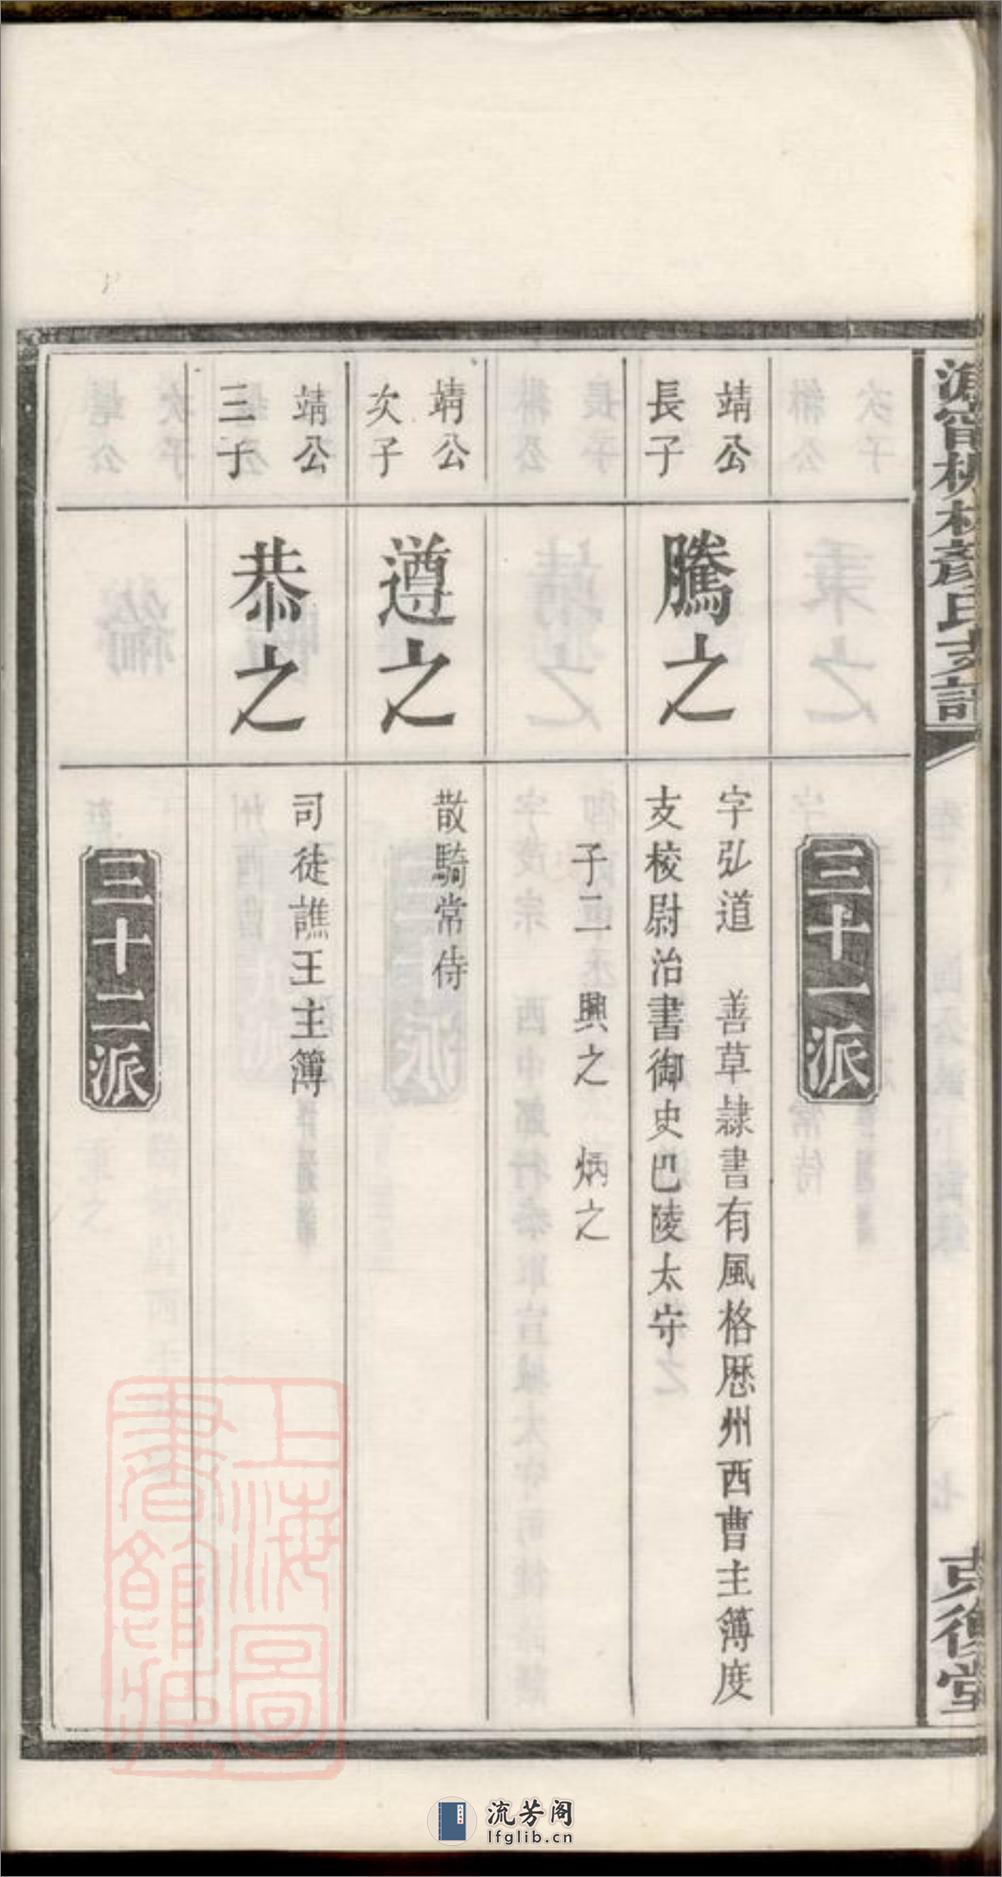 三十一派
靖公
長子
騰之
字弘道　善草隷書有風格歷州西曹主簿度
支校尉治書御史巴陵太守
子二　興之　炳之
靖公
次子
遵之
散騎常侍
靖公
三子
恭之
司徒譙王主簿
三十二派
克復堂
上海圖
書館藏
流芳阁
lfglib.cn